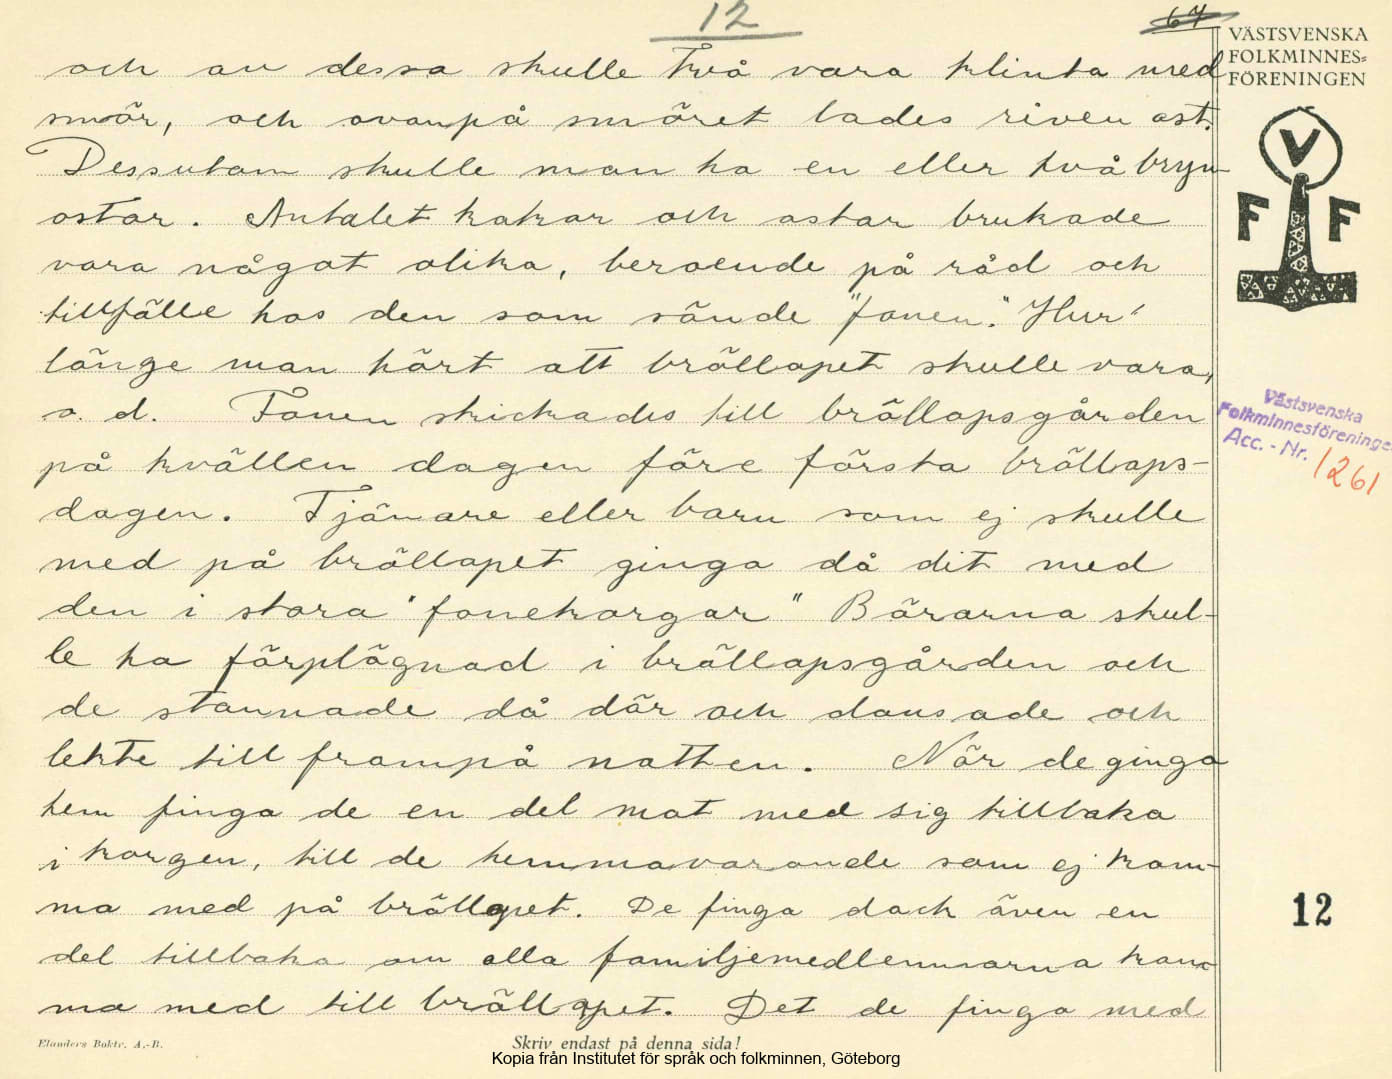 12
67
VÄSTSVENSKA
FOLKMINNES=
FÖRENINGEN
och av dessa skulle två vara klinta med
smör, och ovanpå smöret lades riven ost.
Dessutom skulle man ha en eller två bryn-
ostar. Antalet kakor och ostar brukade
vara något olika, beroende på råd och
tillfälle hos den som sände "fonen". Hur
länge man hört att bröllopet skulle vara,
o. d. Fonen skickades till bröllopsgården
på kvällen dagen före första bröllops-
dagen. Tjänare eller barn som ej skulle
med på bröllopet ginga då dit med
den i stora "fonekorgar" Bärarna skul-
le ha förplägnad i bröllopsgården och
de stannade då där och dansade och
lekte till frampå natten. När de ginga
hem finga de en del mat med sig tillbaka
i korgen, till de hemmavarande som ej kom-
ma med på bröllopet. De finga dock även en
del tillbaka om alla familjemedlemmarna kom-
ma med till bröllopet. Det de finga med
V
F F
Västsvenska
Folkminnesföreninge
Acc. - Nr. 1261
12
Elanders Boktr. A.-B.
Skriv endast på denna sida!
Kopia från Institutet för språk och folkminnen, Göteborg